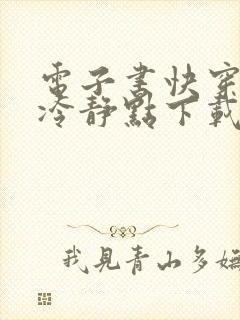 電子書快穿
冷靜點下載
我見青山多嫵